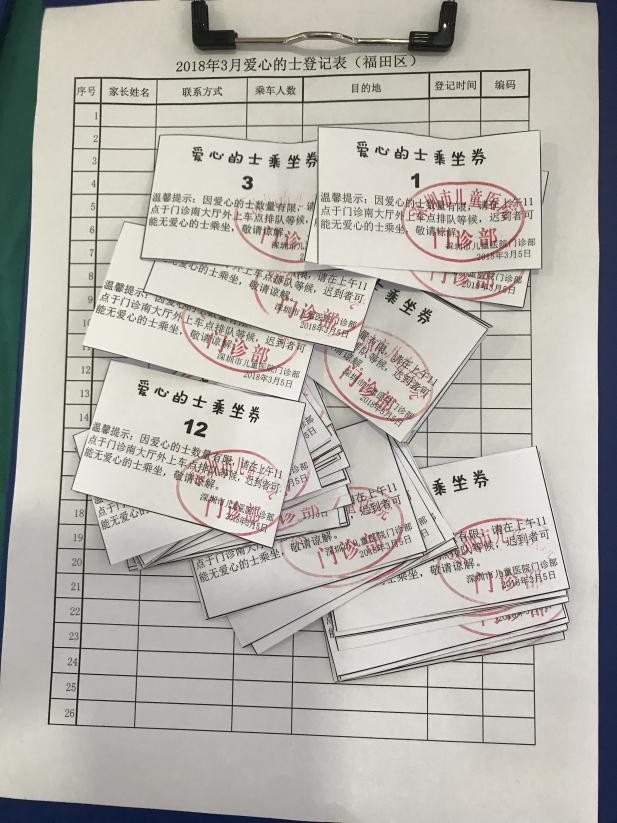 2018年3月爱心的士登记表（福田区）
序号 家长姓名 联系方式 乘车人数 目的地 登记时间 编码
1
2
3
4
5
6
7
8
9
10
12
13
14
18
19
20
21
22
23
24
25
26
爱心的士乘坐券
3
温馨提示：因爱心的士数量有限，请
点于门诊南大厅外上车点排队等候，
能无爱心的士乘坐，敬请谅解。
深圳市儿
门诊
爱心的士乘坐券
1
温馨提示：因爱心的士数量有限，请在上午11
点于门诊南大厅外上车点排队等候，迟到者可
能无爱心的士乘坐，敬请谅解。
深圳市儿童医院门诊部
2018年3月5日
深圳市儿童医
门诊部
深圳市儿童医院门诊部
2018年3月5日
请在上午11
迟到者可
能无爱心的士乘坐，敬请谅解。
深圳市儿童医院门诊部
2018年3月5日
温馨提示：因爱心的士数量有限，请在上午11
点于门诊南大厅外上车点排队等候，迟到者可
能无爱心的士乘坐，敬请谅解。
深圳市儿童医院门诊部
2018年3月5日
门诊部
乘坐券
请在上午11
迟到者可
2018年3月5日
门诊部
爱心的士乘坐券
12
温馨提示：因爱心的士数量有限，请在上午11
点于门诊南大厅外上车点排队等候，迟到者可
能无爱心的士乘坐，敬请谅解。
深圳市儿童医院门诊部
2018年3月5日
门诊部
请在上午11
迟到者可
能无爱心的士乘坐，敬请谅解。
2018年3月5日
门诊部
乘坐券
请在上午11
排队等候，迟到者可
能无爱心的士乘坐，敬请谅解。
深圳市儿童医院门诊部
2018年3月5日